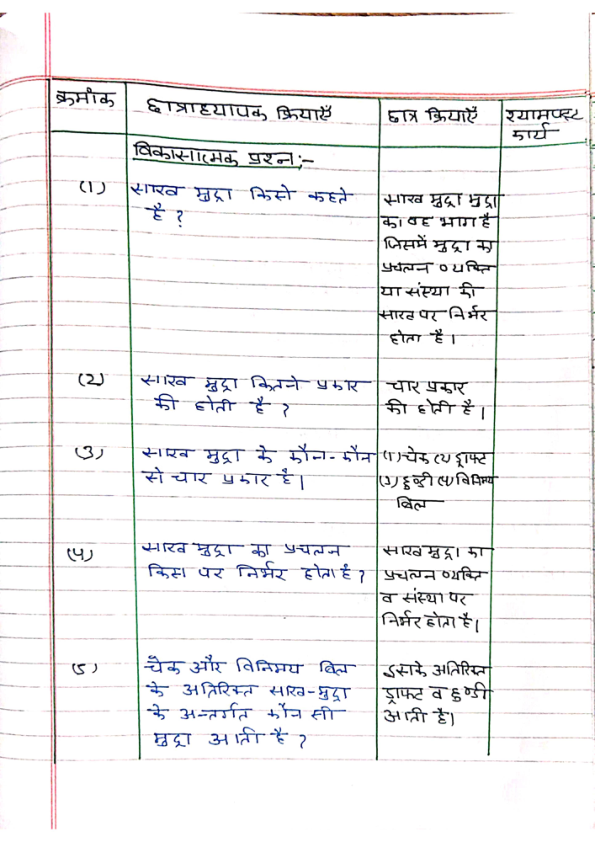 क्रमांक
छात्राध्यापक क्रियाएँ
छात्र क्रियाएँ
श्यामपट्ट
कार्य
विकासात्मक प्रश्न:-
(1)
साख मुद्रा किसे कहते
है ?
साख मुद्रा मुद्रा
का वह भाग है
जिसमें मुद्रा का
प्रचलन व्यक्ति
या संस्था की
साख पर निर्भर
होता है।
(2)
साख मुद्रा कितने प्रकार
की होती है ?
चार प्रकार
की होती है।
(3)
साख मुद्रा के कौन-कौन
से चार प्रकार है।
(1) चेक (2) ड्राफ्ट
(3) हुण्डी (4) विनिमय
बिल
(4)
साख मुद्रा का प्रचलन
किस पर निर्भर होता है ?
साख मुद्रा का
प्रचलन व्यक्ति
व संस्था पर
निर्भर होता है।
(5)
चैक और विनिमय बिल
के अतिरिक्त साख-मुद्रा
के अन्तर्गत कौन सी
मुद्रा आती है ?
इसके अतिरिक्त
ड्राफ्ट व हुण्डी
आती है।